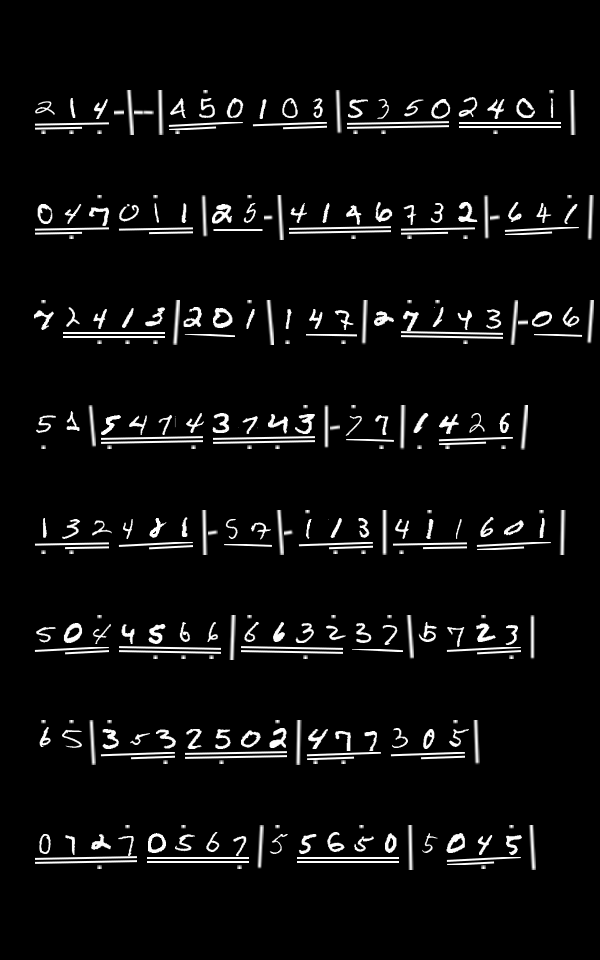 214-|--|450103|5350240i|
047011|25-|4146732|-641|
72413|201|147|27143|-06|
51|547143743|-77|1426|
132481|-57|-113|411601|
5045566|66323 7|5723|
65|3532502|477305|
07270567|55650|5045|